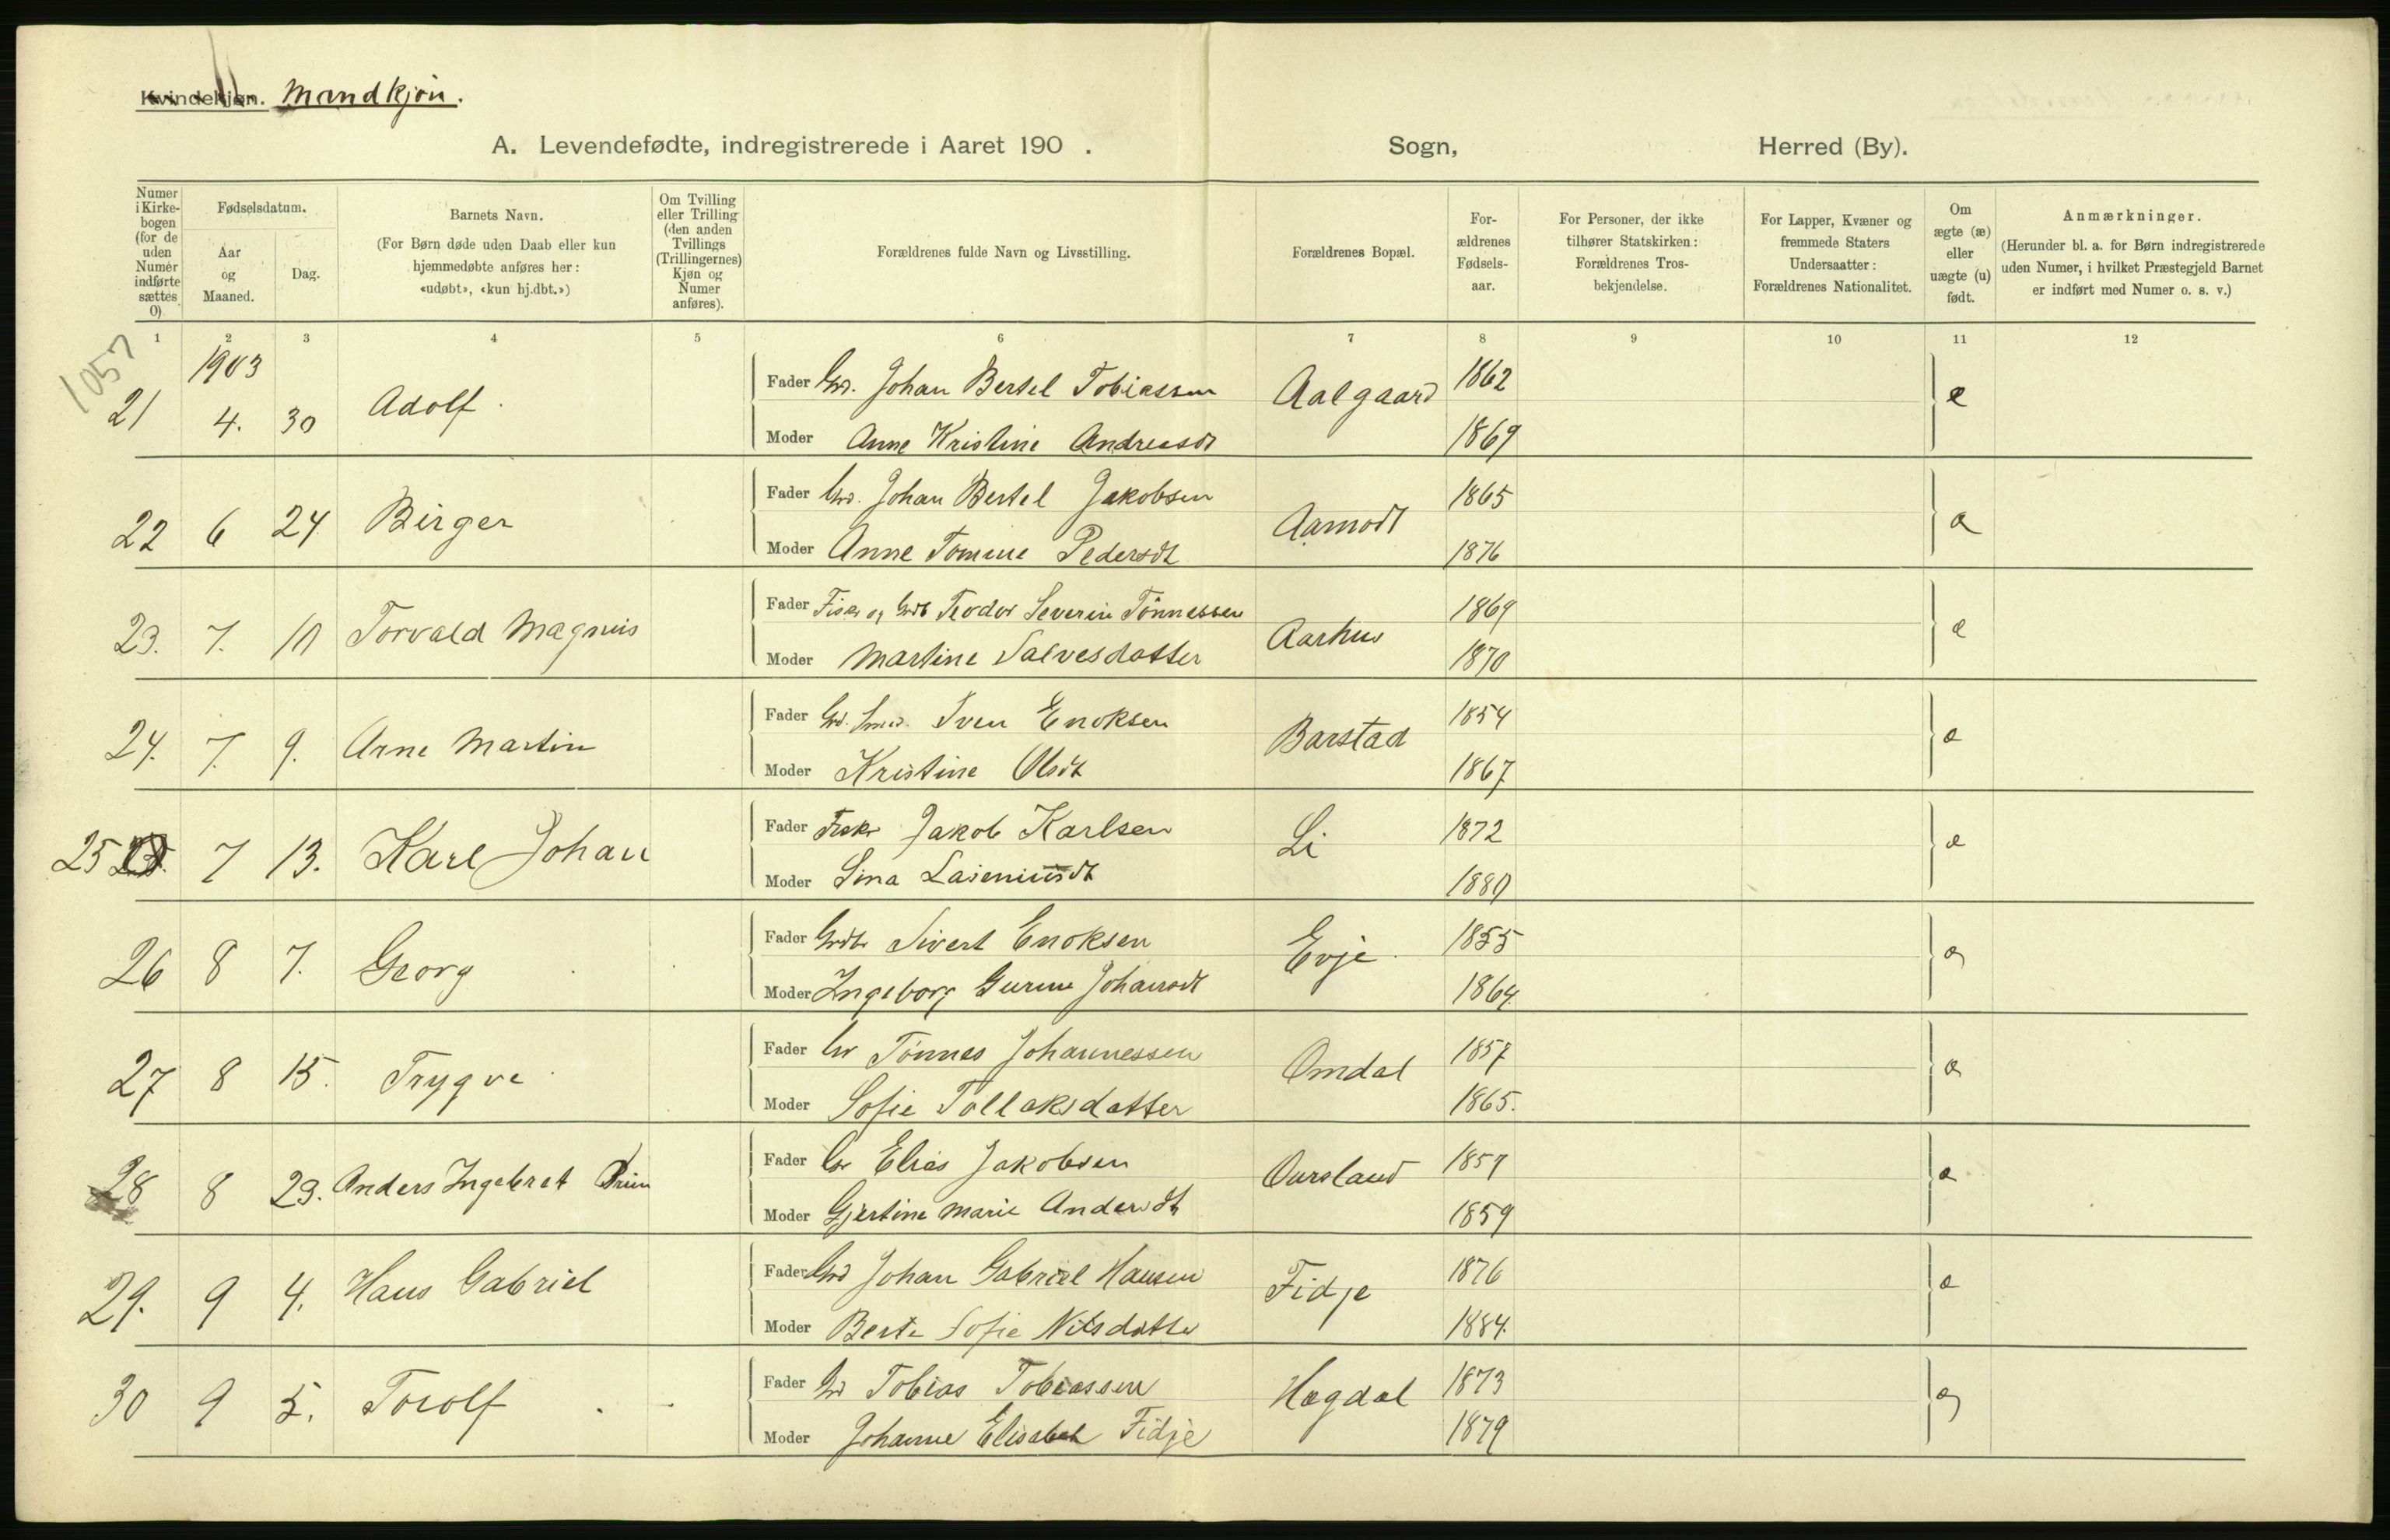 Kvindekjøn. Mandkjøn.
A. Levendefødte, indregistrerede i Aaret 190 . Sogn, Herred (By).
Numer i Kirkebogen (for de uden Numer indførte sættes 0)
Fødselsdatum.
Aar og Maaned.
Dag.
Barnets Navn.
(For Børn døde uden Daab eller kun hjemmedøbte anføres her: «udøbt», «kun hj.dbt.»)
Om Tvilling eller Trilling (den anden Tvillings (Trillingernes) Kjøn og Numer anføres).
Forældrenes fulde Navn og Livsstilling.
Forældrenes Bopæl.
Forældrenes Fødselsaar.
For Personer, der ikke tilhører Statskirken: Forældrenes Trosbekjendelse.
For Lapper, Kvæner og fremmede Staters Undersaatter: Forældrenes Nationalitet.
Om ægte (æ) eller uægte (u) født.
Anmærkninger.
(Herunder bl. a. for Børn indregistrerede uden Numer, i hvilket Præstegjeld Barnet er indført med Numer o. s. v.)
1 2 3 4 5 6 7 8 9 10 11 12
1057
1903
21 4. 30 Adolf Fader Grd. Johan Bertel Tobiassen Aalgaard 1862 æ
Moder Anne Kristine Andreasdt 1869
22 6 24 Birger Fader Grd. Johan Bertel Jakobsen Aamodt 1865 æ
Moder Anne Tomine Pedersdt 1876
23. 7. 10 Torvald Magnus Fader Fisker og Grdb Teodor Severin Tönnessen Aarhus 1869 æ
Moder Martine Salvesdatter 1870
24. 7. 9. Arne Martin Fader Grd. Smed. Sven Enoksen Barstad 1854 æ
Moder Kristine Olsdt 1867
25 7 13. Karl Johan Fader Fisker Jakob Karlsen Li 1872 æ
Moder Sina 1880
26 8 7. Georg Fader Grdbr Sivert Enoksen Evje 1855 æ
Moder Ingeborg Gurine Johansdt 1864
27 8 15. Trygve Fader Grd Tönnes Johannessen Omdal 1857 æ
Moder Sofie Tollaksdatter 1865.
28 8 23. Anders Ingebret Fader Grd Elias Jakobsen Oursland 1857 æ
Moder Gjertine Marie Andersdt 1859
29. 9 4. Hans Gabriel Fader Grd Johan Gabriel Hansen Fidje 1876 æ
Moder Berte Sofie Nilsdatter 1884.
30 9 5. Torolf Fader Grd Tobias Tobiassen Hogdal 1873 æ
Moder Johanne Elisabet Fidje 1879